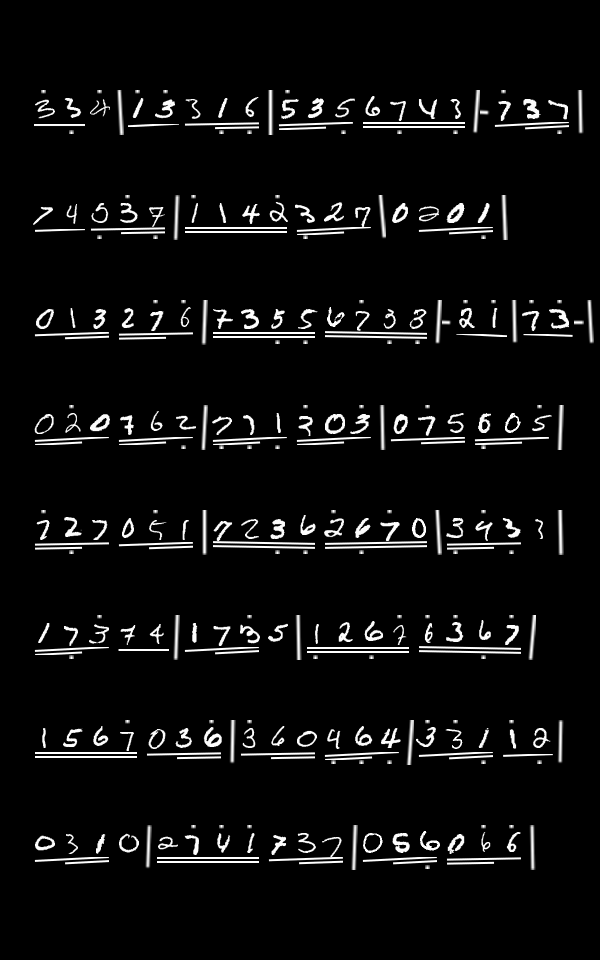 3 3 4 | 1 3 3 1 6 | 5 3 5 6 7 4 3 | - 7 3 7 |
7 4 0 3 7 | 1 1 4 2 3 2 7 | 0 2 0 1 |
0 1 3 2 7 6 | 7 3 5 5 6 7 3 3 | - 2 1 | 7 3 - |
0 2 0 7 6 2 | 7 7 1 3 0 3 | 0 7 5 6 0 5 |
7 2 7 0 5 1 | 7 2 3 6 2 6 7 0 | 3 4 3 3 |
1 7 3 7 4 | 1 7 3 5 | 1 2 6 7 6 3 6 7 |
1 5 6 7 0 3 6 | 3 6 0 4 6 4 | 3 3 1 1 2 |
0 3 1 0 | 2 7 4 1 7 3 7 | 0 5 6 0 6 6 |